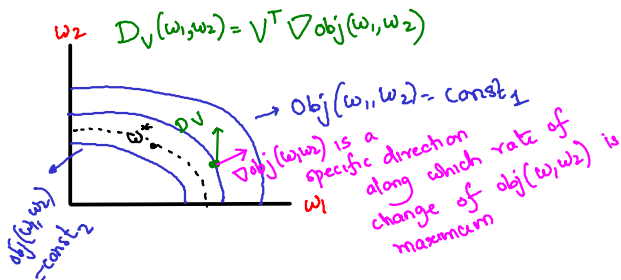 D_V(ω₁,ω₂) = V^T ∇obj(ω₁,ω₂)
ω₂
→ Obj(ω₁,ω₂) = const₁
DV
ω*
∇obj(ω,ω₂) is a
specific direction
along which rate of
change of obj(ω,ω₂) is
maximum
ω₁
obj(ω₁,ω₂)
=const₂